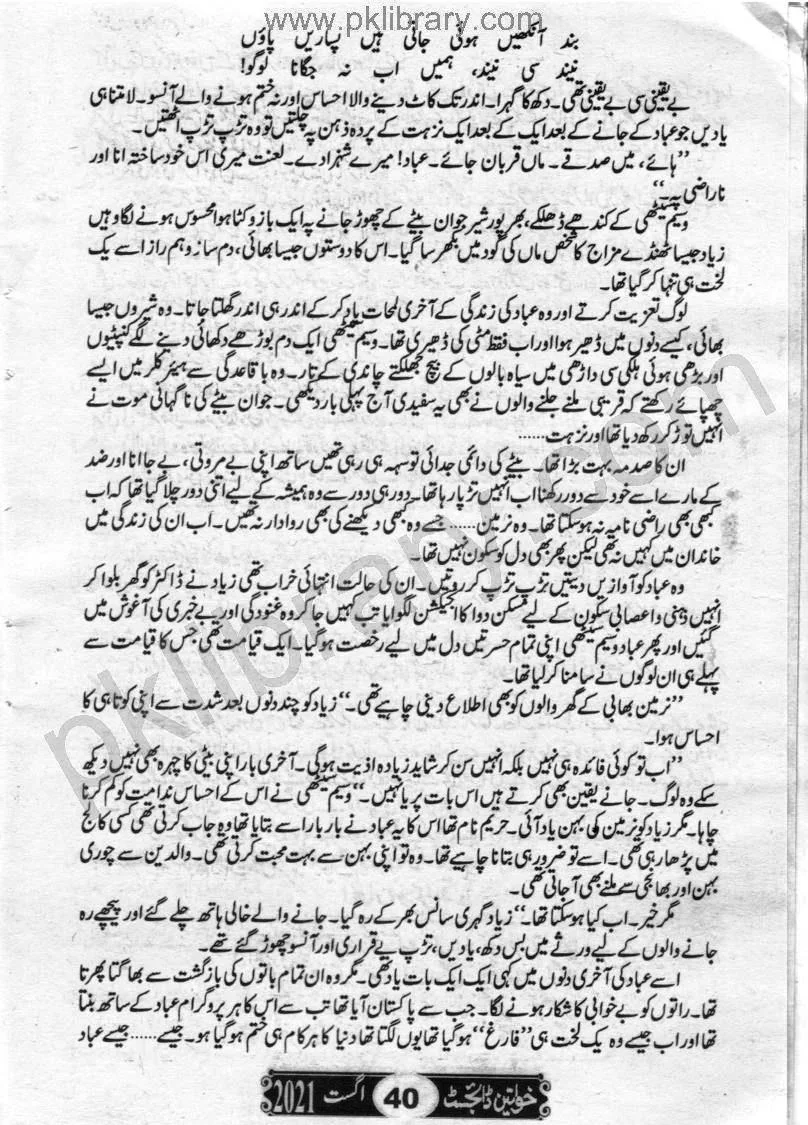 www.pklibrary.com
بند آنکھیں ہوئی جاتی ہیں پساریں پاؤں
نیند سی نیند، ہمیں اب نہ جگانا لوگو!
بے یقینی سی بے یقینی تھی۔ دکھ کا گہرا۔ اندر تک کاٹ دینے والا احساس اور نہ ختم ہونے والے آنسو۔ لامتناہی
یادیں جو عباد کے جانے کے بعد ایک کے بعد ایک نزہت کے پردہ ذہن پہ چلتیں تو وہ تڑپ تڑپ اٹھتیں۔
”ہائے، میں صدقے۔ ماں قربان جائے۔ عباد! میرے شہزادے۔ لعنت میری اس خود ساختہ انا اور
ناراضی پہ۔“
وسیم سیٹھی کے کندھے ڈھلکے، بھرپور شیر جوان بیٹے کے چھوڑ جانے پہ ایک بازو کٹتا ہوا محسوس ہونے لگا وہیں
زیاد جیسا ٹھنڈے مزاج کا شخص ماں کی گود میں بکھر سا گیا۔ اس کا دوستوں جیسا بھائی، دم ساز و ہم راز اسے یک
لخت ہی تنہا کر گیا تھا۔
لوگ تعزیت کرتے اور وہ عباد کی زندگی کے آخری لمحات یاد کر کے اندر ہی اندر گھلتا جاتا۔ وہ شیروں جیسا
بھائی، کیسے دنوں میں ڈھیر ہوا اور اب فقط مٹی کی ڈھیری تھا۔ وسیم سیٹھی ایک دم بوڑھے دکھائی دینے لگے کنپٹیوں
اور بڑھی ہوئی ہلکی سی داڑھی میں سیاہ بالوں کے بیچ جھلکتے چاندی کے تار۔ وہ باقاعدگی سے ہیئر کلر میں ایسے
چھپائے رکھتے کہ قریبی ملنے جلنے والوں نے بھی یہ سفیدی آج پہلی بار دیکھی۔ جوان بیٹے کی ناگہانی موت نے
انہیں توڑ کر رکھ دیا تھا اور نزہت......
ان کا صدمہ بہت بڑا تھا۔ بیٹے کی دائمی جدائی تو سہہ ہی رہی تھیں ساتھ اپنی بے مروتی، بے جا انا اور ضد
کے مارے اسے خود سے دور رکھنا اب انہیں تڑپا رہا تھا۔ دور ہی دور سے وہ ہمیشہ کے لیے اتنی دور چلا گیا تھا کہ اب
کبھی بھی راضی نامہ نہ ہو سکتا تھا۔ وہ نرمین...... جسے وہ کبھی دیکھنے کی بھی روادار نہ تھیں۔ اب ان کی زندگی میں
خاندان میں کہیں نہ تھی لیکن پھر بھی دل کو سکون نہیں تھا۔
وہ عباد کو آوازیں دیتیں تڑپ تڑپ کر روتیں۔ ان کی حالت انتہائی خراب تھی زیاد نے ڈاکٹر کو گھر بلوا کر
انہیں ذہنی و اعصابی سکون کے لیے مسکن دوا کا انجیکشن لگوایا تب کہیں جا کر وہ غنودگی اور بے خبری کی آغوش میں
گئیں اور پھر عباد وسیم سیٹھی اپنی تمام حسرتیں دل میں لیے رخصت ہو گیا۔ ایک قیامت تھی جس کا قیامت سے
پہلے ہی ان لوگوں نے سامنا کر لیا تھا۔
”نرمین بھابی کے گھر والوں کو بھی اطلاع دینی چاہیے تھی۔“ زیاد کو چند دنوں بعد شدت سے اپنی کوتاہی کا
احساس ہوا۔
”اب تو کوئی فائدہ ہی نہیں بلکہ انہیں سن کر شاید زیادہ اذیت ہو گی۔ آخری بار اپنی بیٹی کا چہرہ بھی نہیں دیکھ
سکے وہ لوگ۔ جانے یقین بھی کرتے ہیں اس بات پر یا نہیں۔“ وسیم سیٹھی نے اس کے احساس ندامت کو کم کرنا
چاہا۔ مگر زیاد کو نرمین کی بہن یاد آئی۔ حریم نام تھا اس کا یہ عباد نے بارہا اسے بتایا تھا وہ جاب کرتی تھی کسی کالج
میں پڑھا رہی تھی۔ اسے تو ضرور ہی بتانا چاہیے تھا۔ وہ تو اپنی بہن سے بہت محبت کرتی تھی۔ والدین سے چوری
بہن اور بھانجی سے ملنے بھی آ جاتی تھی۔
مگر خیر۔ اب کیا ہو سکتا تھا۔“ زیاد گہری سانس بھر کے رہ گیا۔ جانے والے خالی ہاتھ چلے گئے اور پیچھے رہ
جانے والوں کے لیے ورثے میں بس دکھ، یادیں، تڑپ بے قراری اور آنسو چھوڑ گئے تھے۔
اسے عباد کی آخری دنوں میں کہی ایک ایک بات یاد تھی۔ مگر وہ ان تمام باتوں کی بازگشت سے بھاگتا پھرتا
تھا۔ راتوں کو بے خوابی کا شکار ہونے لگا۔ جب سے پاکستان آیا تھا تب سے اس کا ہر پروگرام عباد کے ساتھ بنتا
تھا اور اب جیسے وہ یک لخت ہی ”فارغ“ ہو گیا تھا یوں لگتا تھا دنیا کا ہر کام ہی ختم ہو گیا ہو۔ جیسے...... جیسے عباد
خواتین ڈائجسٹ 40 اگست 2021
pklibrary.com